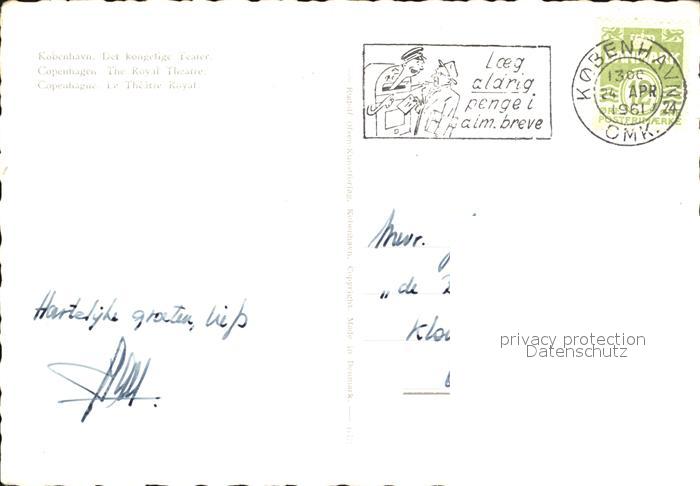 København. Det kongelige Teater.
Copenhagen The Royal Theatre.
Copenhague Le Théâtre Royal.
Læg
aldrig
penge i
alm. breve
KØBENHAVN
13 00
24 APR
1961
OMK.
POSTFRIMÆRKE
København. Copyright. Made in Denmark.
Mevr.
„de
Hartelijke groeten, liefs
privacy protection
Datenschutz